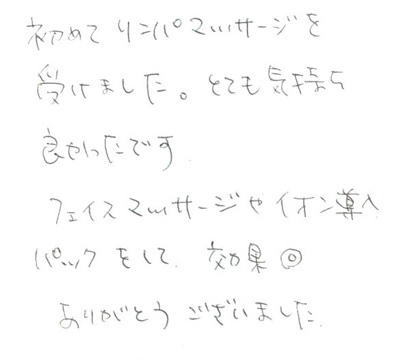 初めてリンパマッサージを
受けました。とても気持ち
良かったです
フェイスマッサージやイオン導入
パックをして、効果◎
ありがとうございました.